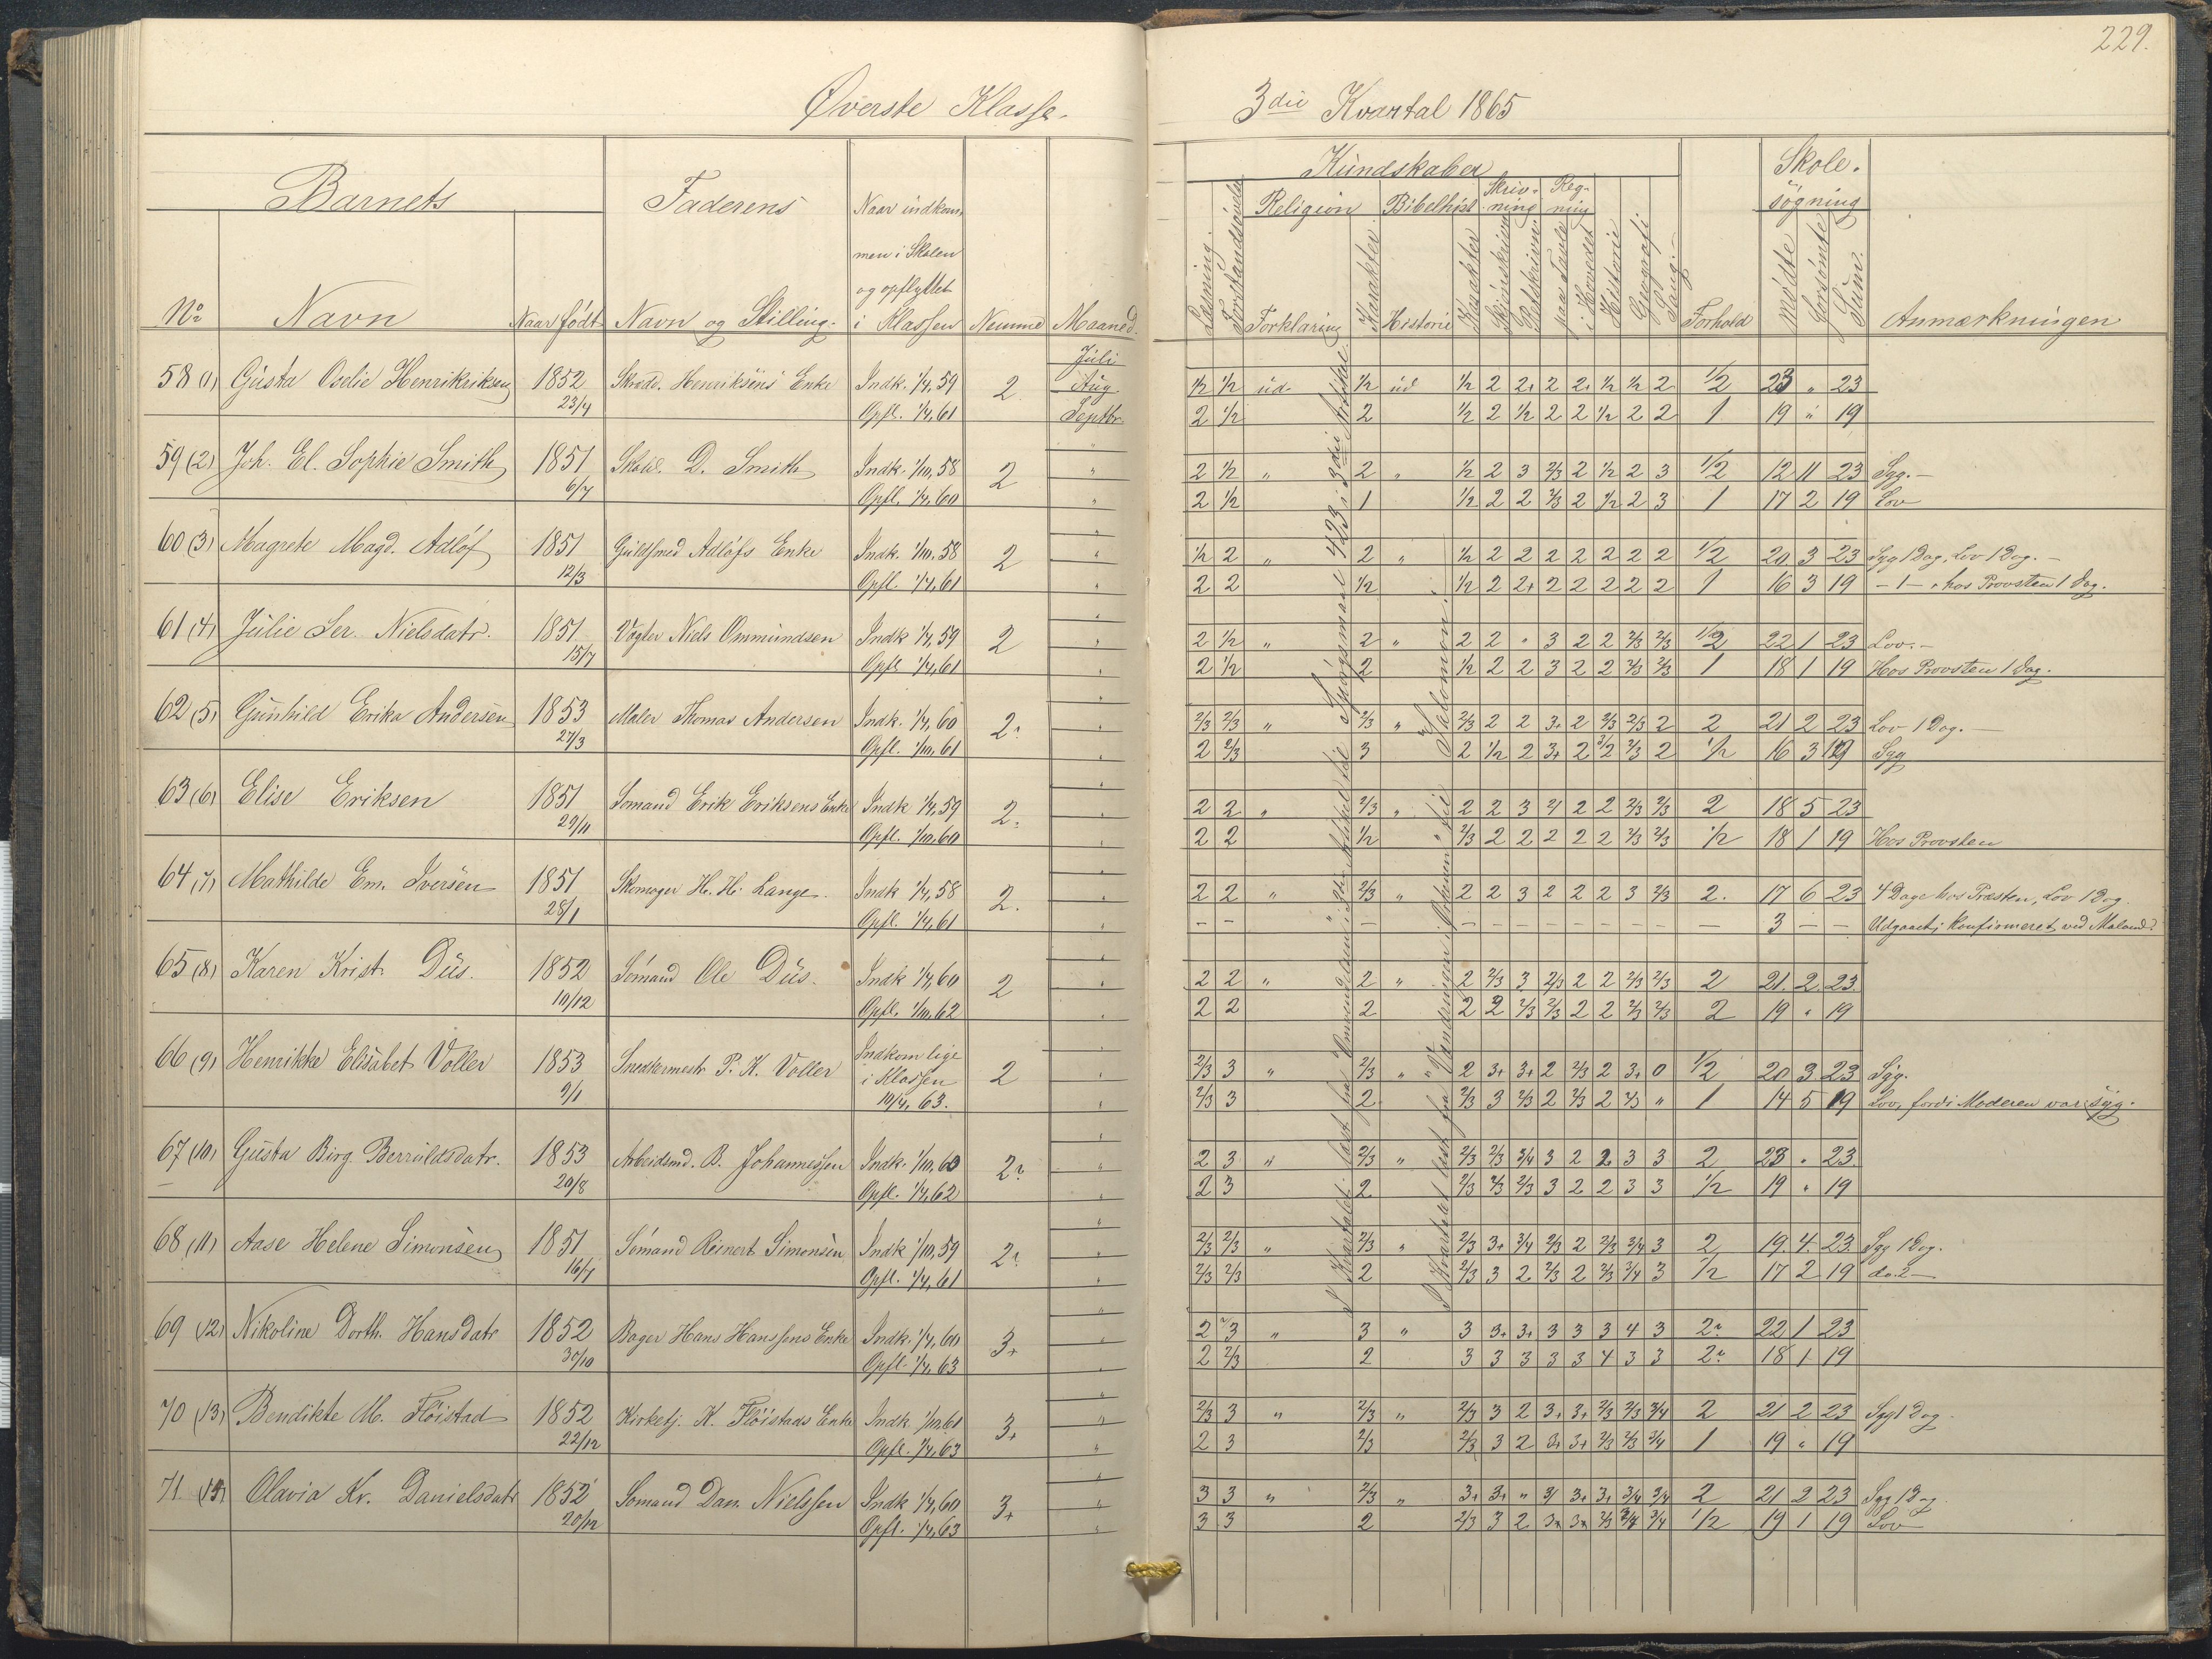 229.
Øverste Klasse.
3die Kvartal 1865
Barnets
Faderens
Naar indkom-
men i Skolen
og opflyttet
i Klassen
No
Navn
Naar født
Navn og Stilling.
Nemme
Maaned.
Kundskaber
Skole-
søgning
Religion
Bibelhist
Skriv-
ning
Reg-
ning
Læsning.
Forklaring
Karakter
Historie
Karakter
paa Tavle
i Hovedet
Historie
Geografi
Sang.
Forhold
Mødte
Forsømte
Sum.
Anmærkningen
58 (1) Gusta Oselie Henrikriksen 1852 23/4 Skræd. Henriksens Enke Indk. 1/4, 59 Opfl. 1/4, 61 2
Juli
Aug. 1/2 1/2 ud 1/2 ud 1/2 2 2+ 2 2+ 1/2 1/2 2 1/2 23 " 23
Septbr. 2 1/2 2 1/2 2 1/2 2 2 1/2 2 2 1 19 " 19
59 (2) Joh. El. Sophie Smith 1851 6/7 D. Smith Indk. 1/10, 58 Opfl. 1/4, 60 2
2 1/2 " 2 " 1/2 2 3 2/3 2 1/2 2 3 1/2 12 11 23 Syg.-
2 1/2 1 1/2 2 2 2/3 2 1/2 2 3 1 17 2 19 Lov
60 (3) Magrete Magd. Adløf 1851 12/3 Guldsmed Adløfs Enke Indk. 1/10, 58 Opfl. 1/4, 61 2
1/2 2 " 2 " 1/2 2 2 2 2 2 2 2 1/2 20 3 23 Syg 1 Dag, Lov 1 Dag.-
2 2 1/2 1/2 2 2+ 2 2 2 2 2 1 16 3 19 -1-, hos Provsten 1 Dag.
61 (4) Julie Ser. Nielsdatr. 1851 15/7 Vægter Niels Ommundsen Indk 1/4, 59 Opfl 1/4, 61 2
2 1/2 " 2 " 2 2 " 3 2 2 2/3 2/3 1/2 22 1 23 Lov.-
2 1/2 2 1/2 2 2 3 2 2 2/3 2/3 1 18 1 19 Hos Provsten 1 Dag.
62 (5) Gunhild Erika Andersen 1853 27/3 Maler Thomas Andersen Indk. 1/4, 60 Opfl. 1/10, 61 2
2/3 2/3 " 2/3 " 2/3 2 2 3+ 2 2/3 2/3 2 2 21 2 23 Lov 1 Dag.-
2 2/3 3 2 1/2 2 3+ 2 2/3 2 1/2 16 3 19 Syg
63 (6) Elise Eriksen 1851 29/11 Sømand Erik Eriksens Enke Indk 1/4, 59 Opfl. 1/10, 60 2
2 2 " 2/3 " 2 2 3 2 2 2/3 2/3 2 18 5 23
2 2 1/2 2/3 2 2 2 2 2 2/3 2/3 1/2 18 1 19 Hos Provsten
64 (7) Mathilde Em. Iversen 1851 28/1 Skomager H. H. Lange. Indk 1/4, 58 Opfl. 1/4, 61 2.
2 2 " 2/3 " 2 2 3 2 2 2 3 2/3 2. 17 6 23 4 Dage hos Præsten, Lov 1 Dag.
- - - - - - - - - - - - 3 - - Udgaaet; konfirmeret
65 (8) Karen Krist. Düs. 1852 10/12 Sømand Ole Düs. Indk 1/4, 60 Opfl. 1/10, 62 2
2 2 " 2 " 2 2/3 3 2/3 2 2 2/3 2/3 2 21. 2 23.
2 2 2 2 2 2/3 2/3 2 2 2/3 2/3 2 19 " 19
66 (9) Henrikke Elisabet Voller 1853 9/1 Snedkermestr P. K. Voller Indkom lige
i Klassen
10/4, 63. 2
2/3 3 " 2/3 " 2 3+ 3+ 2 2/3 2 3+ 0 1/2 20 3 23 Syg.
2/3 3 2 2/3 3 2/3 2 2/3 2 2/3 " 1 14 5 19 Lov, fordi Moderen var syg.
67 (10) Gusta Birg. Berruldsdatr. 1853 20/8 Arbeidsmd. B. Johannessen Indk. 1/10, 60 Opfl. 1/4, 62 2
2 3 " 2/3 " 2/3 2/3 3/4 3 2 2 3 3 2 23 " 23.
2 3 2 2/3 2/3 2/3 3 2 2 3 3 1/2 19 " 19
68 (11) Aase Helene Simonsen 1851 16/7 Sømand Reinert Simonsen Indk 1/10, 59 Opfl. 1/4, 61 2
2/3 2/3 " 2/3 " 2/3 3+ 3/4 2/3 2 2/3 3/4 3 2 19 4 23 Syg 1 Dag.
2/3 2/3 2 2/3 3 2 2/3 2 2/3 3/4 3 1/2 17 2 19 do. 2-
69 (12) Nikoline Dorth. Hansdatr 1852 30/10 Bager Hans Hanssens Enke Indk. 1/4, 60 Opfl. 1/4, 63 3+
2 3 " 3 " 3 3+ 3+ 3 3 3 4 3 2 22 1 23
2 2/3 2 3 3 3 3 3 4 3 3 2 18 1 19
70 (13) Bendikte M. Fløistad 1852 22/12 Kirketj. K. Fløistads Enke Indk 1/10, 61 Opfl. 1/4, 63 3+
2/3 3 " 2/3 " 2/3 3 2 3+ 3+ 2/3 2/3 3/4 2 21 2 23 Syg 1 Dag
2 3 2/3 2/3 3 2 3+ 3+ 2/3 2/3 3/4 1 19 " 19
71 (14) Olavia Kr. Danielsdatr 1852 20/12 Sømand Dan. Nielssen Indk 1/4, 60 Opfl. 1/4, 63 3+
3 3 " 2/3 " 3+ 3+ " 3 3+ 3+ 3/4 3/4 2 21 2 23 Syg 1 Dag
3 3 2 2/3 3 2 2/3 3/4 3/4 1/2 19 1 19 Lov